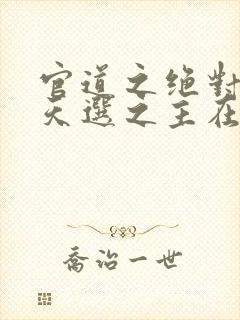 官道之绝对
天选之主在
乔治一世